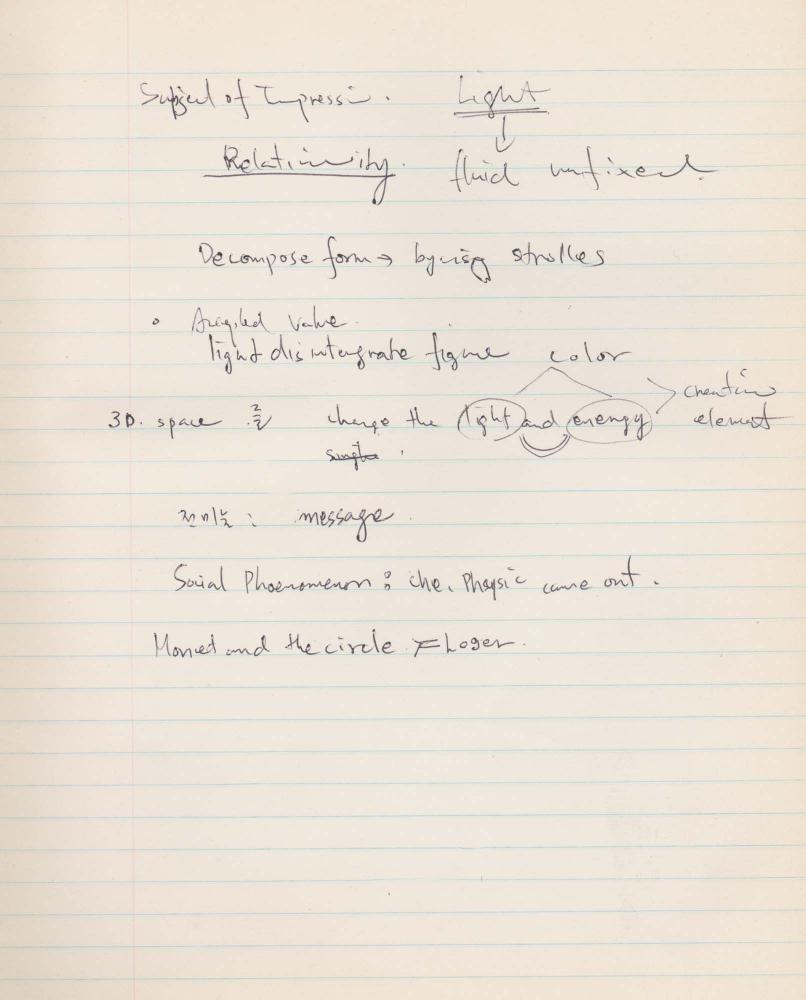 Subject of Impressi. Light
Relativity. fluid unfixed
Decompose form → by using strokes
value
light disintengrate figure color
3D. space 를 change the light and energy creative element
전미술 : message.
Social Phoenomenon : che. Phepsic came out.
Monet and the circle